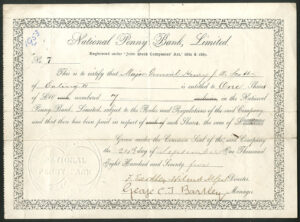 National Penny Bank, Limited.
Registered under "Joint Stock Companies' Acts,
No. 7
This is to certify that Major General Henry J. A. Scott
of Ealing W is entitled to One Share
of numbered 7 in the National
Penny Bank, Limited, subject to the Rules and Regulations of the said Company,
and that there has been paid in respect of each such Share, the sum of
Given under the Common Seal of the said Company
the 24th day of September One Thousand
Eight Hundred and Seventy five
Director
George C. T. Bartley Manager
NATIONAL
PENNY BANK